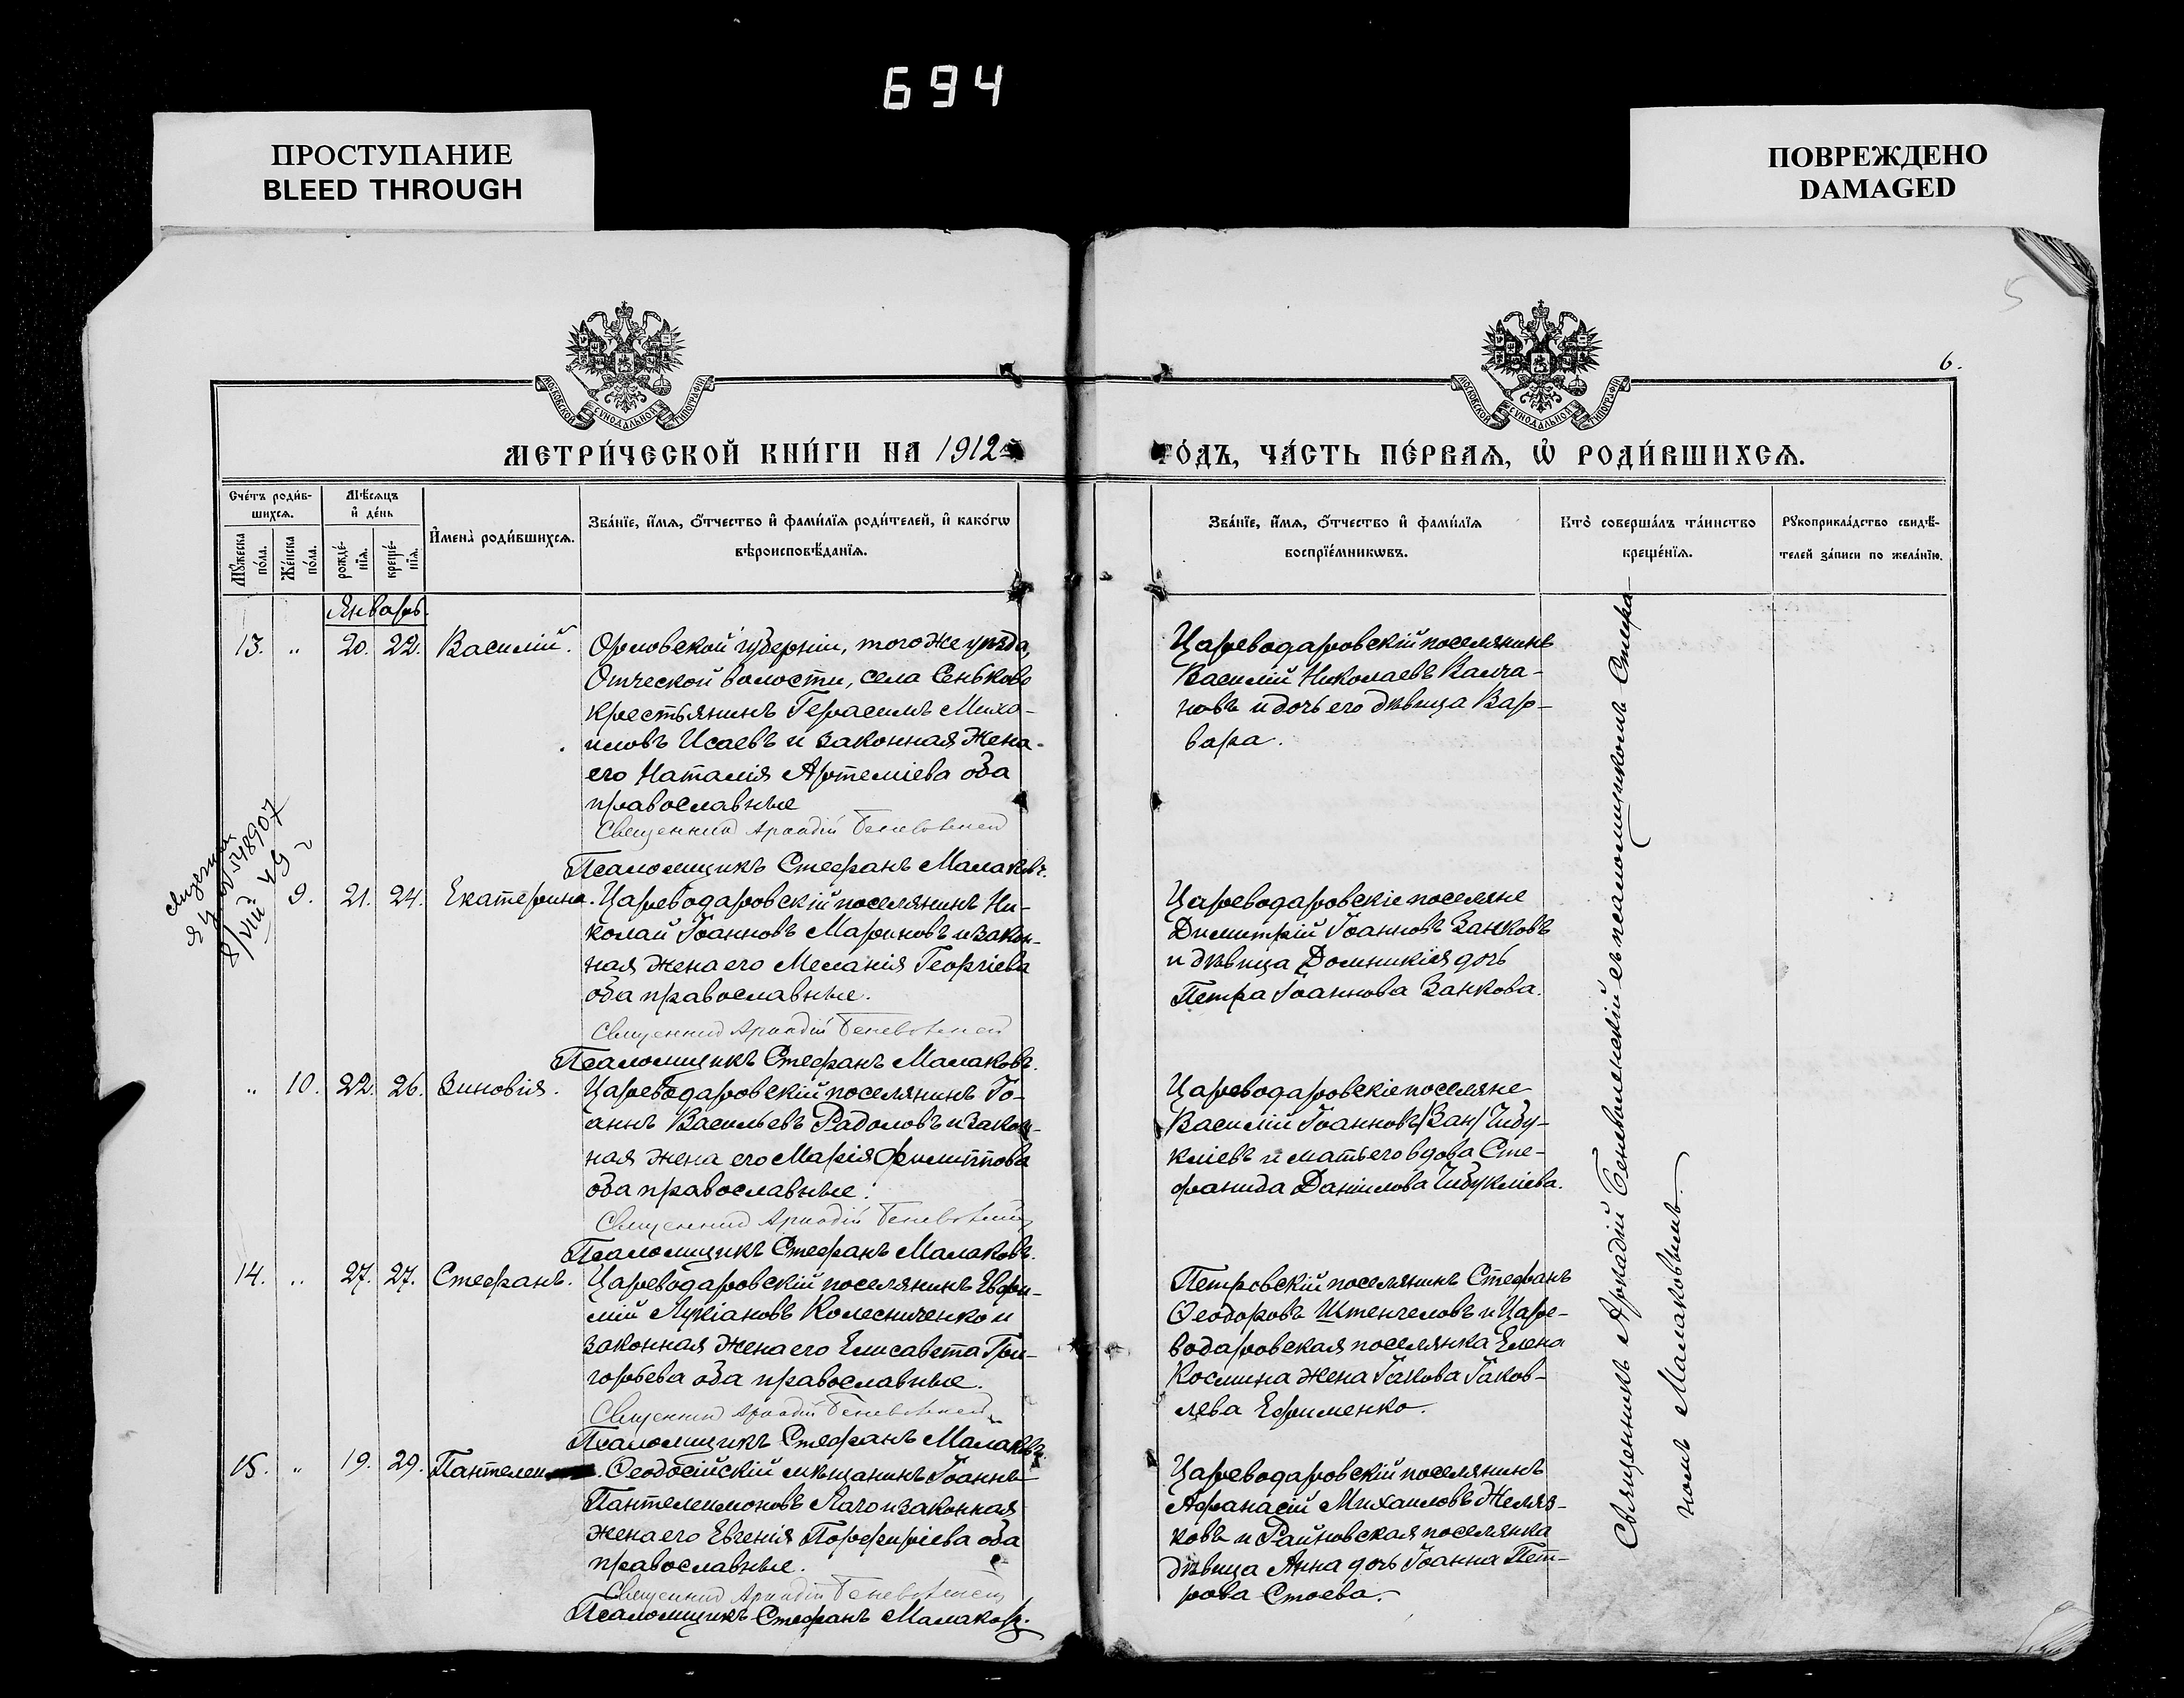 694
ПРОСТУПАНИЕ
BLEED THROUGH
ПОВРЕЖДЕНО
DAMAGED
5
6.
МОСКОВСКОЙ СУНОДАЛЬНОЙ ТИПОГРАФІИ
МОСКОВСКОЙ СУНОДАЛЬНОЙ ТИПОГРАФІИ
МЕТРИ́ЧЕСКОЙ КНИ́ГИ НА 1912
ГО́ДЪ, ЧА́СТЬ ПЕ́РВАѦ, Ѽ РОДИ́ВШИХСѦ.
Сче́тъ роди́в-
шихсѧ.
Мꙋ́жеска
по́ла.
Же́нска
по́ла.
Мѣ́сѧцъ
и҆ де́нь
рожде́-
нїѧ.
креще́-
нїѧ.
И҆мена̀ роди́вшихсѧ.
Зва́нїе, и҆́мѧ, ѻ҆́тчество и҆ фами́лїѧ роди́телей, и҆ како́гѡ
вѣроисповѣ́данїѧ.
Зва́нїе, и҆́мѧ, ѻ҆́тчество и҆ фами́лїѧ
воспрїе́мникѡвъ.
Кто̀ соверша́лъ та́инство
креще́нїѧ.
Рꙋкоприкла́дство свидѣ́-
телей за́писи по жела́нїю.
Январь.
13. „ 20. 22. Василій. Орловской губерніи, того же уѣзда,
волости, села Сеньково
крестьянинъ Герасимъ Миха-
иловъ Исаевъ и законная жена
его Наталія Артеміева оба
православные
Священник Аркадій Беневоленскій
Псаломщикъ Стефанъ Малаковъ.
Цареводаровскій поселянинъ
Василій Николаевъ Валча-
новъ и дочь его дѣвица Вар-
вара.
548907
8/VIII 49
9. 21. 24. Екатерина. Цареводаровскій поселянинъ Ни-
колай Іоанновъ Мариновъ и закон-
ная жена его Меланія Георгіева
оба православные.
Священник Аркадій Беневоленскій
Псаломщикъ Стефанъ Малаковъ.
Цареводаровскіе поселяне
Димитрій Іоанновъ Занковъ
и дѣвица Домникія дочь
Петра Іоаннова Занкова.
„ 10. 22. 26. Зиновія. Цареводаровскій поселянинъ Іо-
аннъ Васильевъ Радоловъ и закон-
ная жена его Марія Филиппова
оба православные.
Священник Аркадій Беневоленскій
Псаломщикъ Стефанъ Малаковъ.
Цареводаровскіе поселяне
Василій Іоанновъ /Ван/ Чибу-
кліевъ и мать его вдова Сте-
фанида Данилова Чибукліева.
14. „ 27. 27. Стефанъ. Цареводаровскій поселянинъ Евфи-
мій Лукіановъ Колесниченко и
законная жена его Елисавета Гри-
горьева оба православные.
Священник Аркадій Беневоленскій
Псаломщикъ Стефанъ Малаковъ.
Петровскій поселянинъ Стефанъ
Ѳеодоровъ Штенгеловъ и Царе-
водаровская поселянка Елена
Космина жена Іакова Іаков-
лева Ефименко.
15. „ 19. 29. Пантелеи Ѳеодосійскій мѣщанинъ Іоаннъ
Пантелеимоновъ и законная
жена его Евгенія Порфиріева оба
православные.
Священник Аркадій Беневоленскій
Псаломщикъ Стефанъ Малаковъ.
Цареводаровскій поселянинъ
Афанасій Михаиловъ Желяз-
ковъ и Райновская поселянка
дѣвица Анна дочь Іоанна Пет-
рова Стоева.
Священникъ Аркадій Беневоленскій съ псаломщикомъ Стефа-
номъ Малаковымъ.